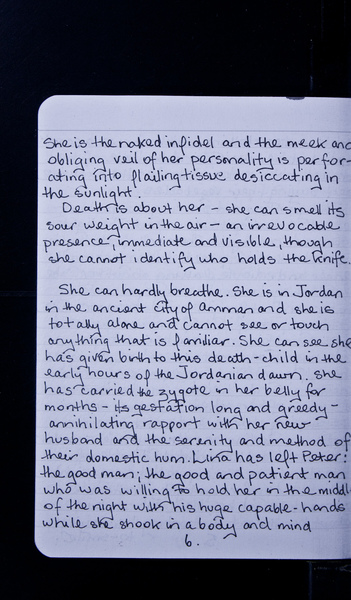 She is the naked infidel and the meek and
obliging veil of her personality is perfor-
ating into flailing tissue desiccating in
the sunlight.
Death is about her - she can smell its
sour weight in the air - an irrevocable
presence, immediate and visible, though
she cannot identify who holds the knife.
She can hardly breathe. She is in Jordan
in the ancient city of Amman and she is
totally alone and cannot see or touch
anything that is familiar. She can see she
has given birth to this death-child in the
early hours of the Jordanian dawn. She
has carried the zygote in her belly for
months - its gestation long and greedy -
annihilating rapport with her new
husband and the serenity and method of
their domestic hum. Lina has left Peter:
the good man; the good and patient man
who was willing to hold her in the middl
of the night with his huge capable-hands
while she shook in a body and mind
6.